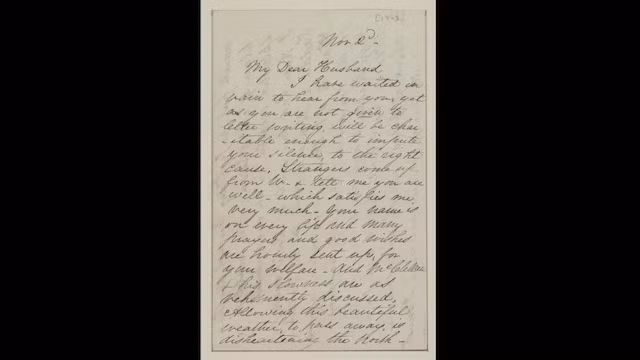 Nov 2d -
My Dear Husband
I have waited in
vain to hear from you, yet
as you are not given to
letter writing, will be char
-itable enough to impute
your silence, to the right
cause. Strangers come up
from W - & tell me you are
well - which satisfies me
very much - Your name is
on every lip and many
prayers and good wishes
are hourly sent up, for
your welfare - And McClellan
& his slowness are as
vehemently discussed.
Allowing this beautiful
weather, to pass away, is
disheartening the North -